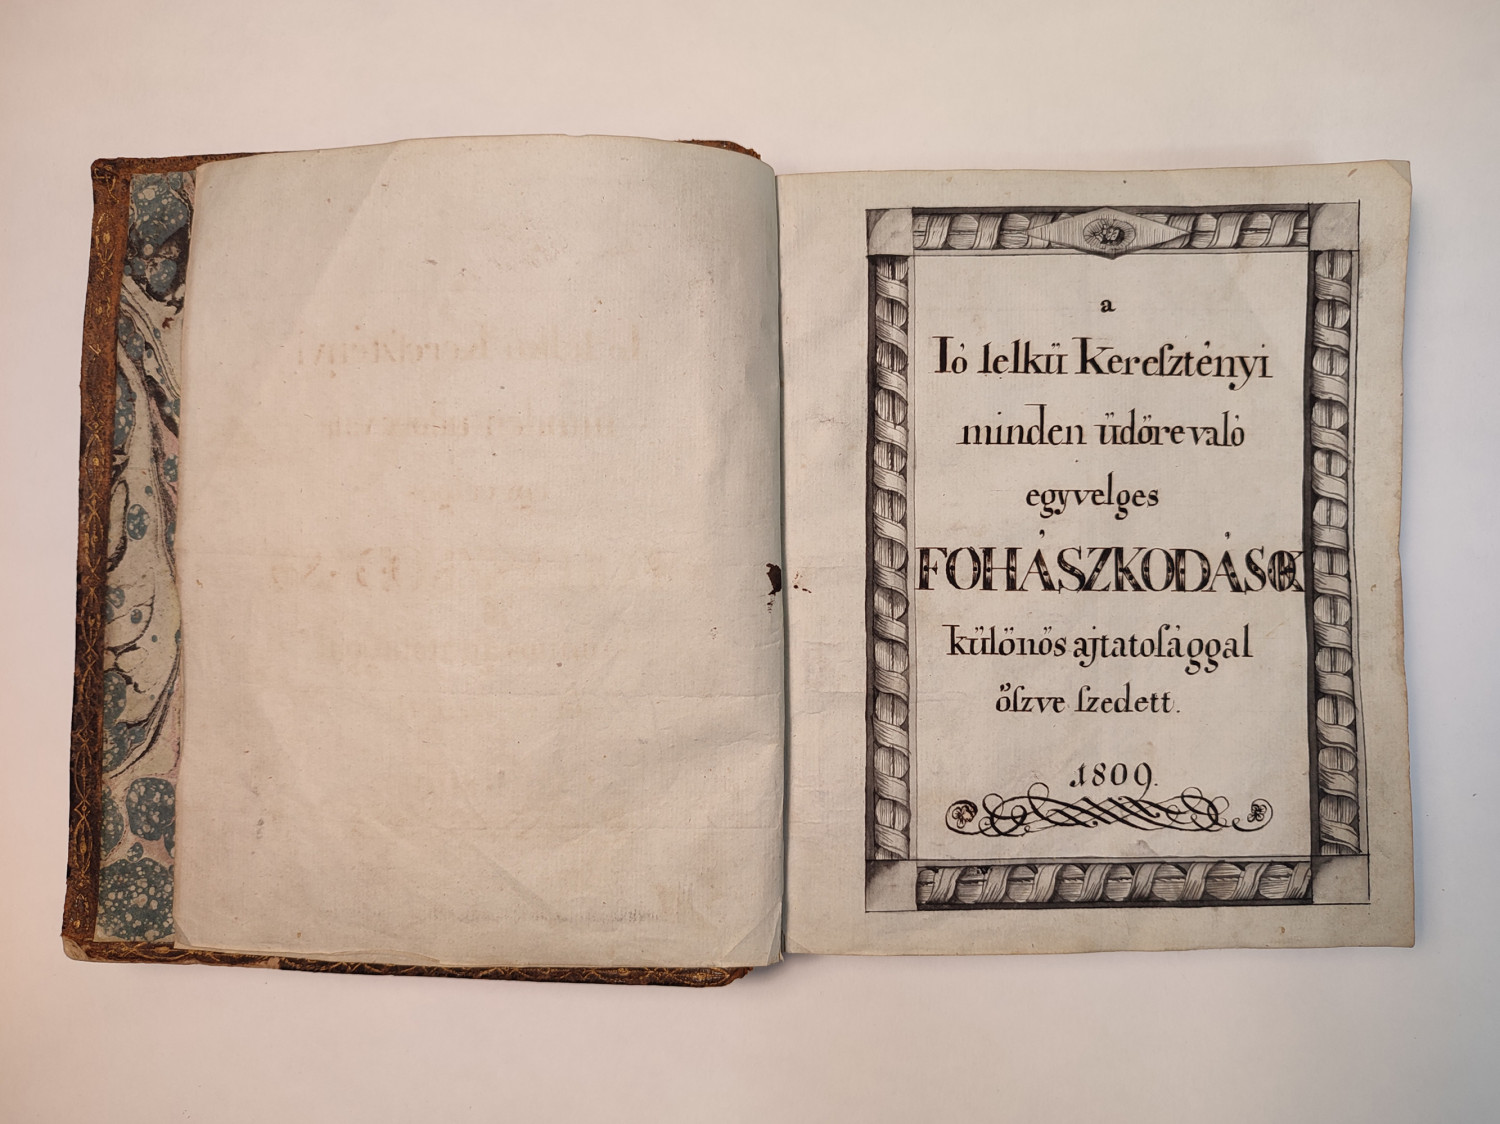 a
Ió lelkü Kereſztényi
minden üdőrevaló
egyvelges
FOHÁSZKODÁSOK
különös ajtatoſággal
öſzve ſzedett.
1809.